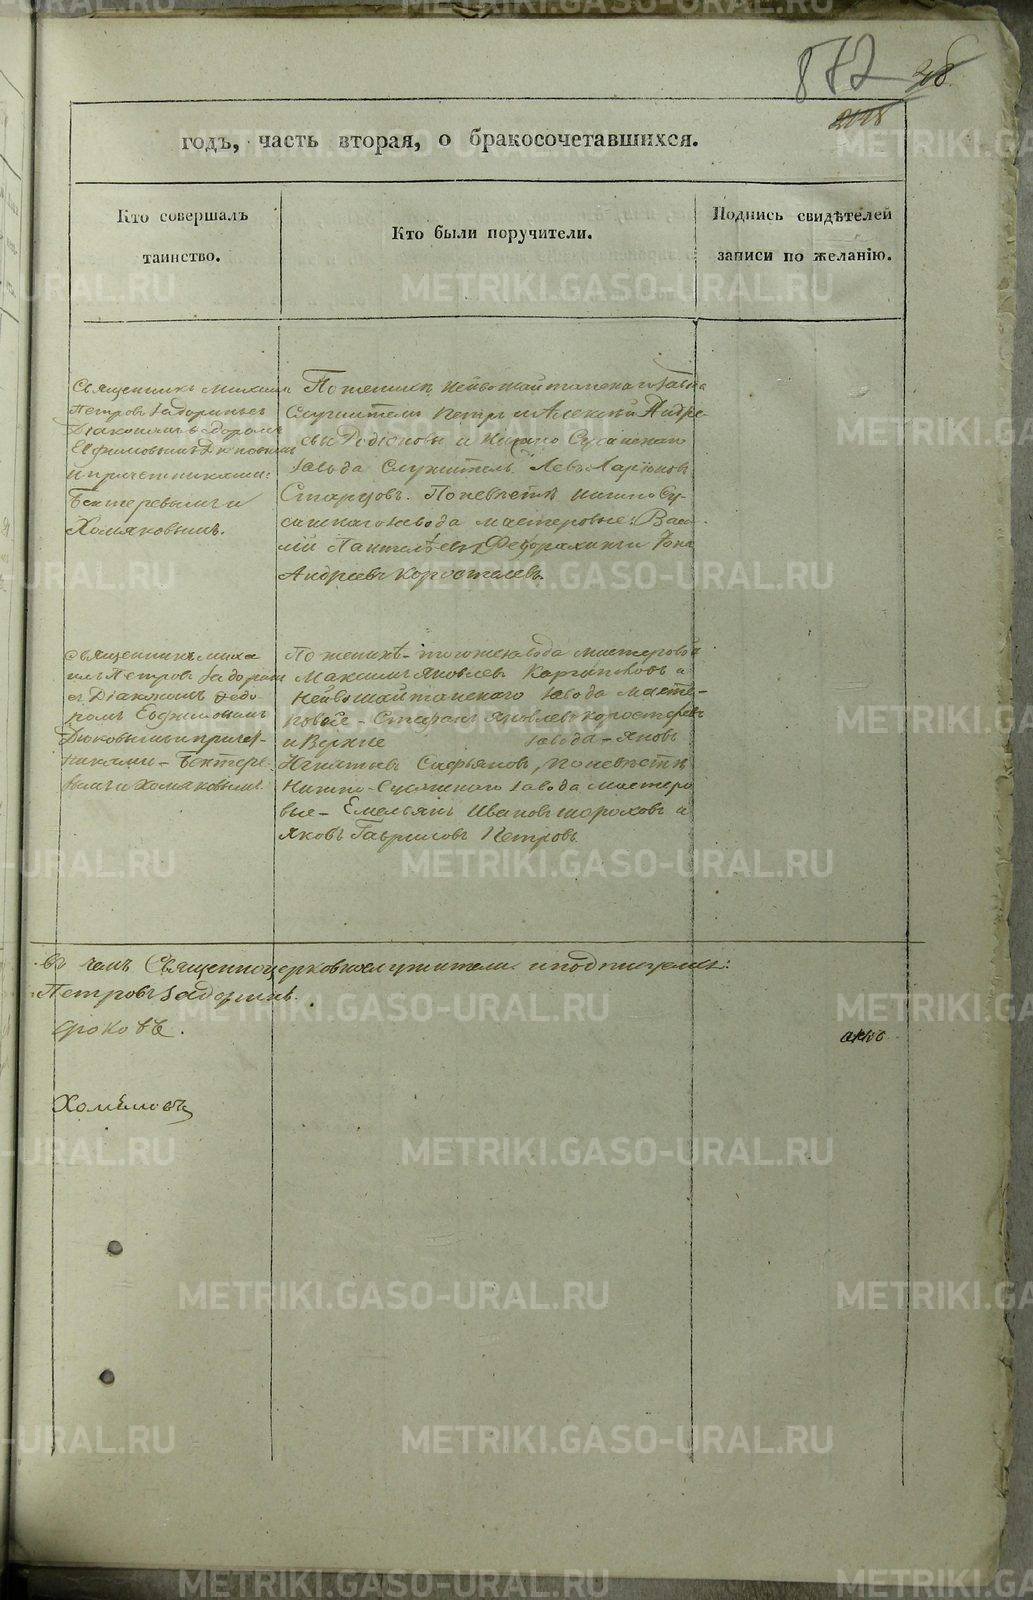 872
годъ, часть вторая, о бракосочетавшихся.
Кто совершалъ
таинство.
Кто были поручители.
Подпись свидѣтелей
записи по желанію.
Священникъ Михаил
Петровъ Задоринъ съ
Діакономъ Ѳедоромъ
Евфимовымъ
и причетниками:
Бехтеревымъ и
Хомяковымъ.
По женихѣ Нейвошайтанскаго завода
Служители Петръ и Алексѣй Андре-
евы Родіоновы и Нижно Сусанскаго
завода Служитель Левъ Ларіоновъ
Старцовъ. По невѣстѣ Нижно Су-
санскаго завода мастеровые: Васи-
лій Пантелѣевъ и Іона
Андреевъ Коростелевъ.
Священникъ Миха
илъ Петровъ Задоринъ
съ Діакономъ Ѳедо-
ромъ Евфимовымъ
Дюковымъ и причет-
никами - Бехтере-
вымъ и Хомяковымъ.
По женихѣ - того же завода мастеровой
Максимъ Яковлевъ и
Нейвошайтанскаго завода масте-
ровые - Яковлевъ Коростелевъ
и Верхне завода - Яковъ
Игнатьевъ, по невѣстѣ
Нижно-Сусанскаго завода мастеро
вые - Емельянъ Ивановъ Шороховъ и
Яковъ Гавриловъ Петровъ.
въ чемъ Священноцерковнослужители и подписуемся:
Петровъ Задоринъ.
Хомяковъ
METRIKI.GASO-URAL.RU